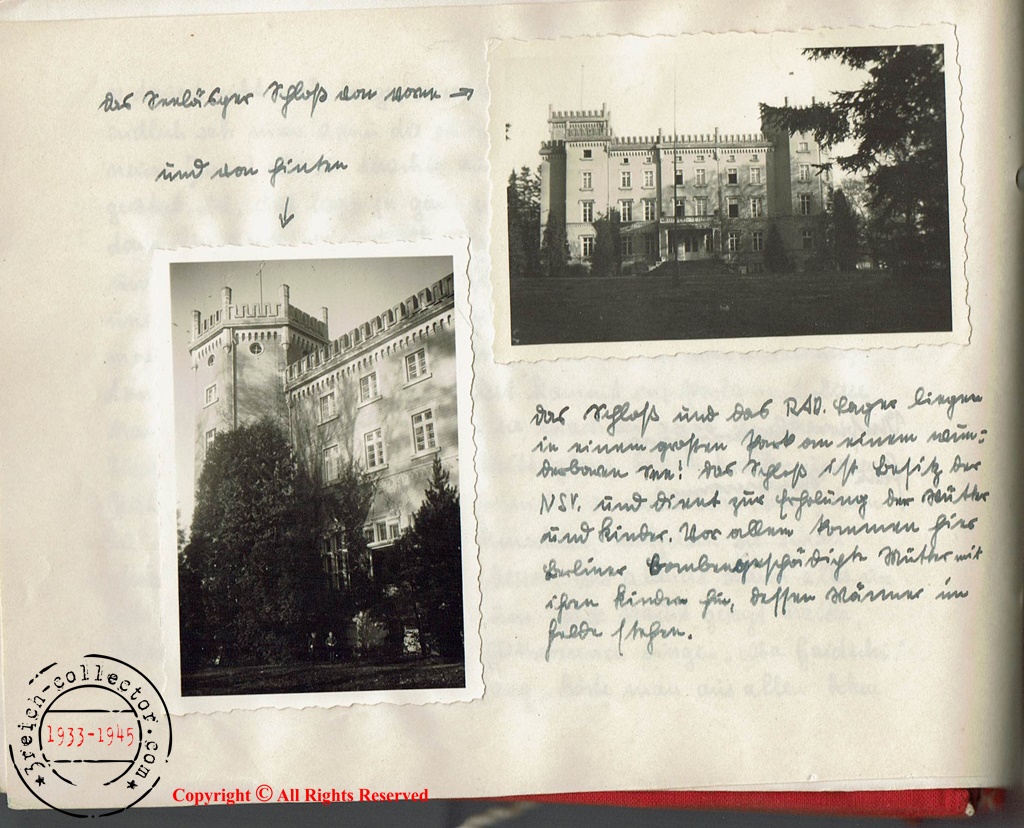 das Seeläsger Schloß von vorne →
und von hinten
↓
das Schloß und das RAD. Lager liegen
in einem großen Park an einem wun-
derbaren See! das Schloß ist Besitz der
NSV. und dient zur Erholung der Mütter
und Kinder. Vor allem kommen hier
Berliner bombengeschädigte Mütter mit
ihren Kindern hin, dessen Männer im
Felde stehen.
3reich-collector.com
1933-1945
Copyright © All Rights Reserved